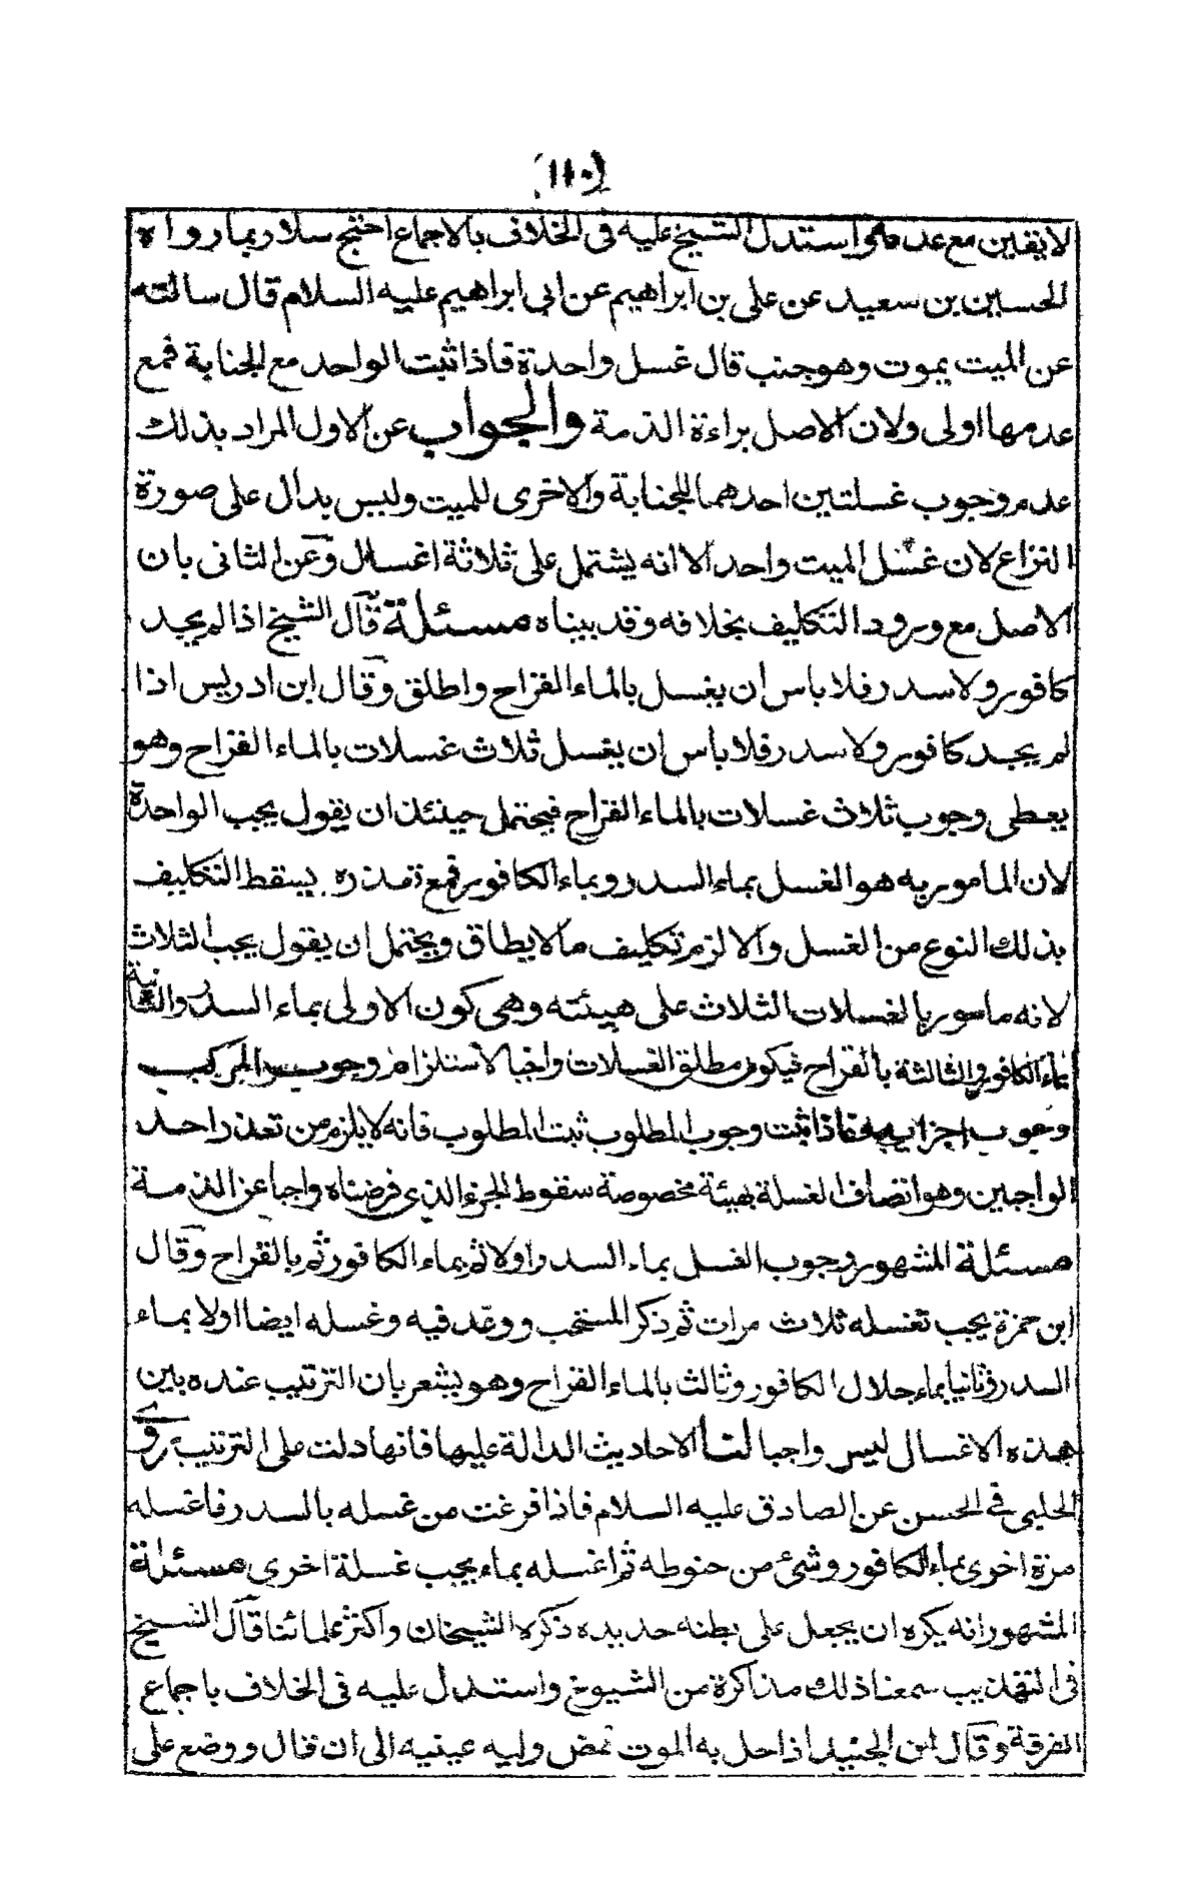 (١١٠)
لا يقين مع عدمه واستدل الشيخ عليه فى الخلاف بالاجماع احتج سلار بما رواه
الحسين بن سعيد عن على بن ابراهيم عن ابى ابراهيم عليه السلام قال سالته
عن الميت يموت وهو جنب قال غسل واحدة فاذا ثبت الواحد مع الجنابة فمع
عدمها اولى ولان الاصل براءة الذمة والجواب عن الاول المراد بذلك
عدم وجوب غسلتين احدهما للجنابة والاخرى للميت وليس بدال على صورة
النزاع لان غسل الميت واحد الا انه يشتمل على ثلاثة اغسال وعن الثانى بان
الاصل مع ورود التكليف بخلافه وقد بيناه مسئلة قال الشيخ اذا لم يجد
كافور ولا سدر فلا باس ان يغسل بالماء القراح واطلق وقال ابن ادريس اذا
لم يجد كافور ولا سدر فلا باس ان يغسل ثلاث غسلات بالماء القراح وهو
يعطى وجوب ثلاث غسلات بالماء القراح فيحتمل حينئذ ان يقول يجب الواحدة
لان المامور به هو الغسل بماء السدر وبماء الكافور فمع تعذره يسقط التكليف
بذلك النوع من الغسل والا لزم تكليف مالا يطاق ويحتمل ان يقول يجب الثلاث
لانه مامور بالغسلات الثلاث على هيئته وهى كون الاولى بماء السدر والثانية
بماء الكافور والثالثة بالقراح فيكون مطلق الغسلات واجبا لاستلزام وجوب المركب
وجوب اجزائه فاذا ثبت وجوب المطلوب ثبت المطلوب فانه لا يلزم من تعذر احد
الواجبين وهو اتصاف الغسلة بهيئة مخصوصة سقوط الجزء الذى فرضناه واجبا عن الذمة
مسئلة المشهور وجوب الغسل بماء السدر اولا ثم بماء الكافور ثم بالقراح وقال
ابن حمزة يجب تغسله ثلاث مرات ثم ذكر المستحب ووعد فيه وغسله ايضا اولا بماء
السدر وثانيا بماء جلال الكافور وثالث بالماء القراح وهو يشعر بان الترتيب عنده بين
هذه الاغسال ليس واجبا لنا الاحاديث الدالة عليها فانها دلت على الترتيب روى
الحلبى فى الحسن عن الصادق عليه السلام فاذا فرغت من غسله بالسدر فاغسله
مرة اخرى بماء الكافور وشئ من حنوطه ثم اغسله بماء يجب غسلة اخرى مسئلة
المشهور انه يكره ان يجعل على بطنه حديده ذكره الشيخان واكثر علمائنا قال الشيخ
فى التهذيب سمعنا ذلك مذاكرة من الشيوخ واستدل عليه فى الخلاف باجماع
الفرقة وقال ابن الجنيد اذا حل به الموت غمض وليه عينيه الى ان قال ووضع على